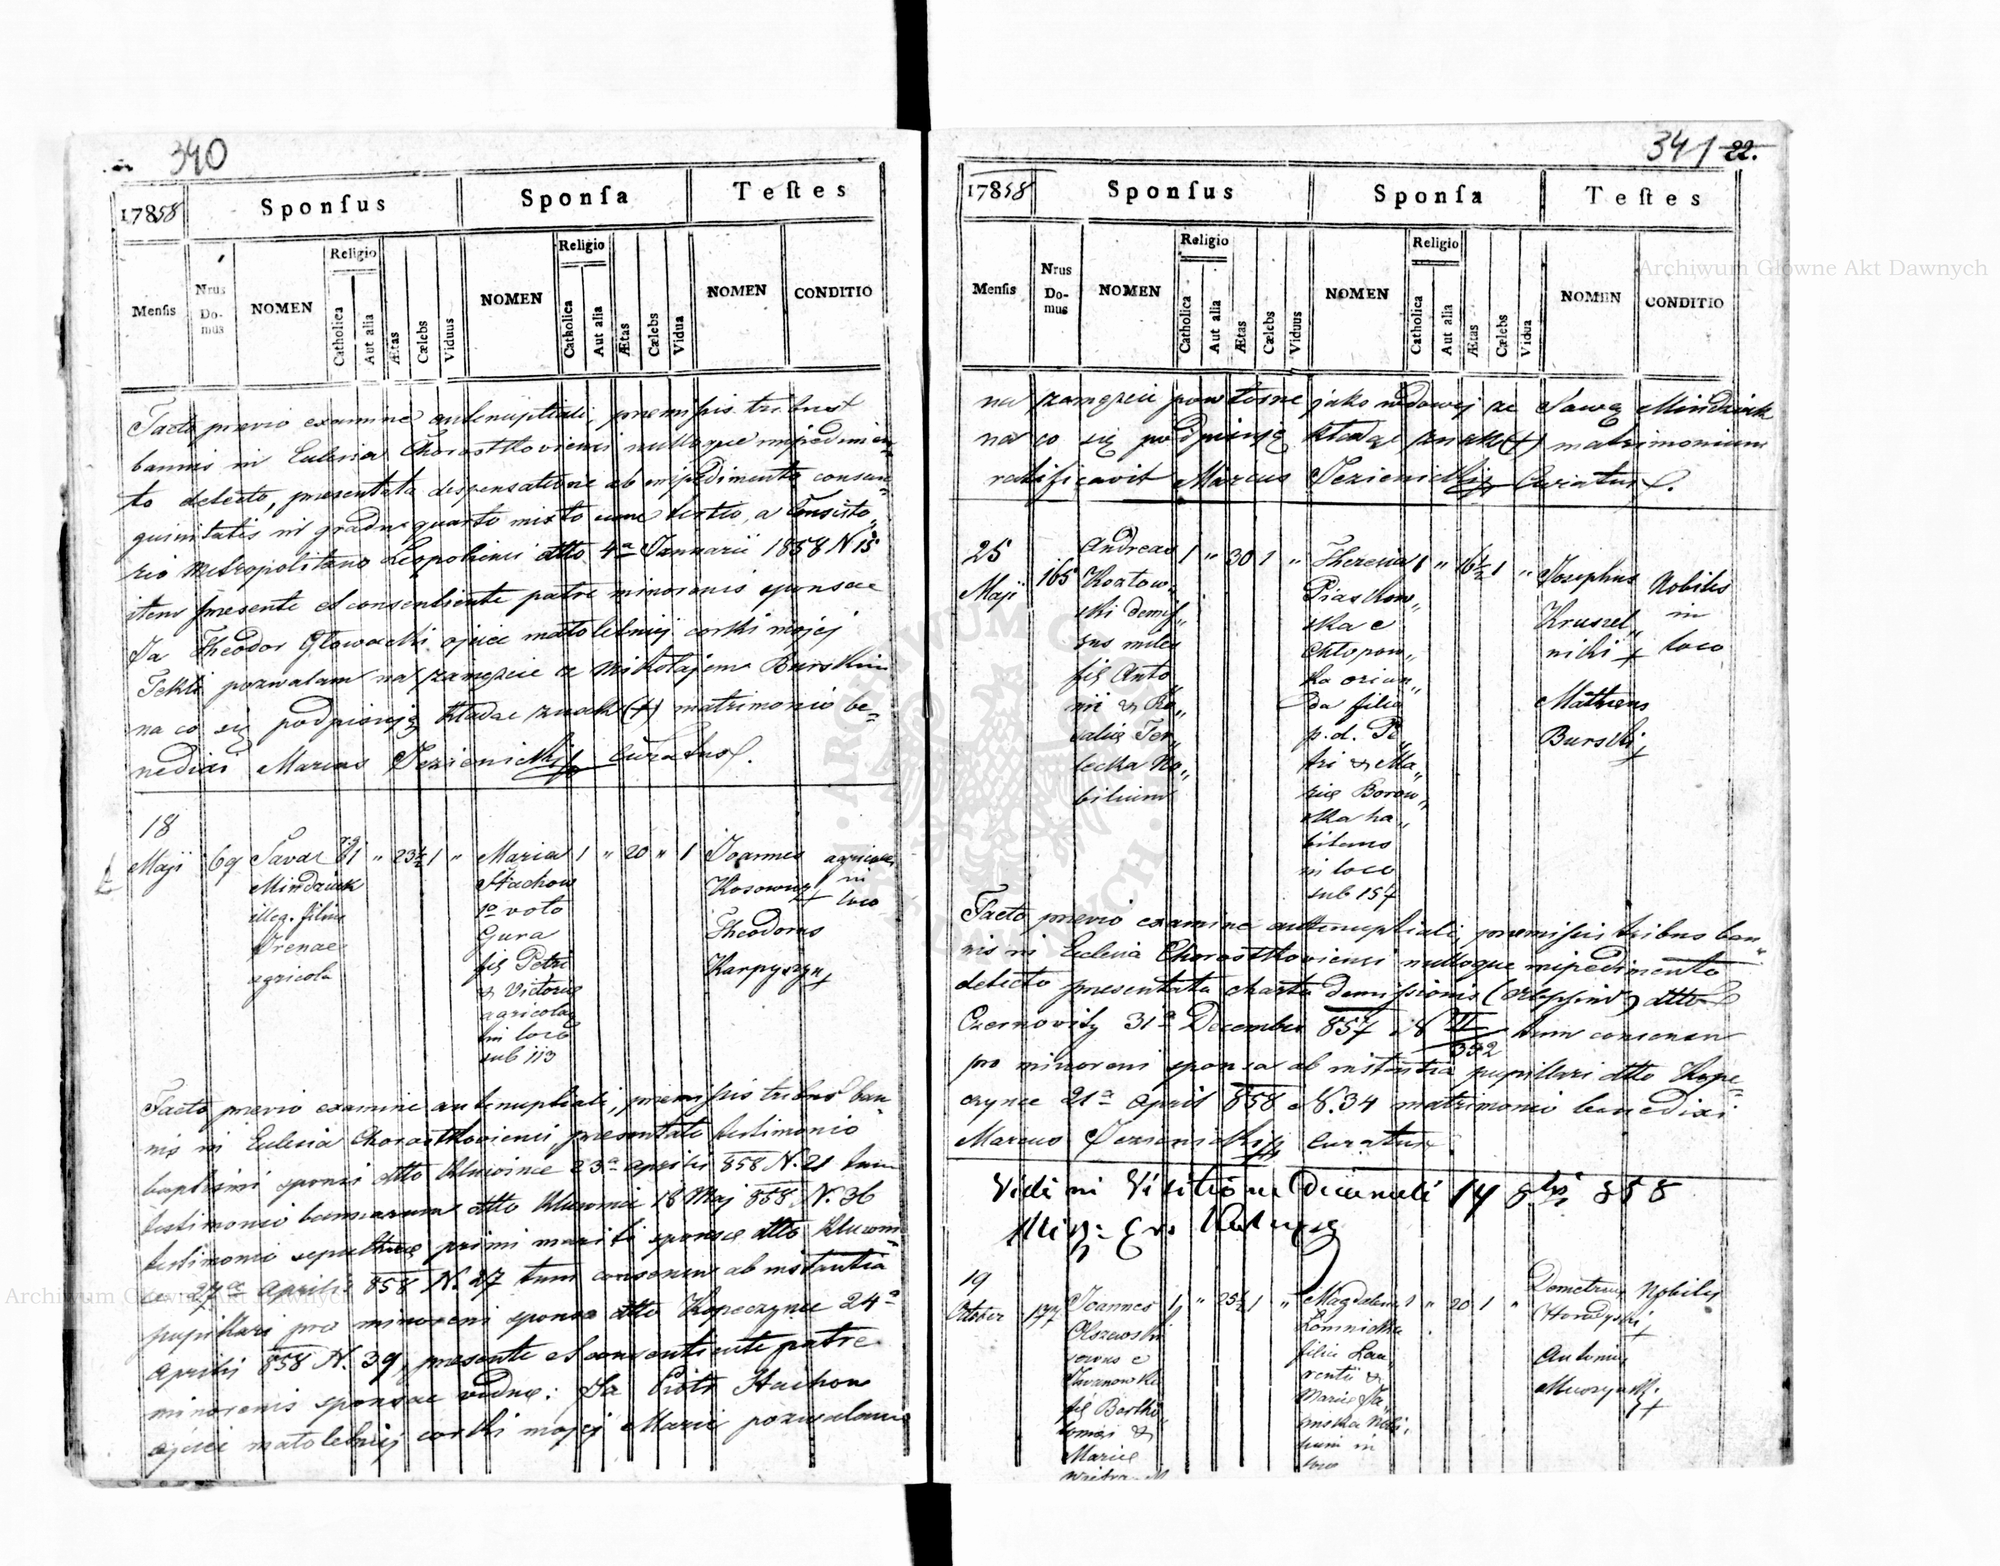 340
17858
Sponſus
Sponſa
Teſtes
Menſis
Nrus Domus
NOMEN
Religio
Catholica
Aut alia
Ætas
Cælebs
Viduus
NOMEN
Religio
Catholica
Aut alia
Ætas
Cælebs
Vidua
NOMEN
CONDITIO
Facto prævio examine antenuptiali, præmissis tribus
bannis in Ecclesia Chorostkoviensi nulloque impedimen=
to detecto, presentata despensatione ab impedimento consan=
guinitatis in gradu quarto mixto cum tertio, a Consisto=
rio Metropolitano Leopoliensi dtto 4a Januarii 1858 N 15
item presente et consentiente patre minorenis sponsae
Ja Theodor Głowacki ojciec małoletniej corki mojej
Tekli pozwalam na zamęzcie z Mikołajem Burskim
na co się podpisuję kładąc znak (+) matrimonio be=
nedixi Marcus Jezienicki Curatus.
18
Maji
69
Savae
Mindziuk
illeg. filius
Irenae
agricola
1 " 23½ 1 "
Maria
Stachow
1o voto
Gura
fil Petri
& Victoriae
agricolae
in loco
sub 113
1 " 20 " 1
Joannes
Kosowicz +
Theodorus
Karpyszyn +
agricolae
in
loco
Facto prævio examine antenuptiali, præmissis tribus ban=
nis in Ecclesia Chorostkoviensi, presentato testimonio
baptismi sponsi dtto 23a Aprilis 858 N. 21 tum
testimonio bannorum dtto 18 Maj 858 N. 36
testimonio sepulturae primi mariti sponsae dtto
27a Aprilis 858 N. 27 tum consensu ab instantia
pupillari pro minoreni sponsa dtto Kopeczynce 24a
Aprilis 858 N. 39, presente et consentiente patre
minorenis sponsae viduae: Ja Piotr Stachow
ojciec małoletniej corki mojej Marii pozwalam
341 22.
17858
Sponſus
Sponſa
Teſtes
Menſis
Nrus Domus
NOMEN
Religio
Catholica
Aut alia
Ætas
Cælebs
Viduus
NOMEN
Religio
Catholica
Aut alia
Ætas
Cælebs
Vidua
NOMEN
CONDITIO
na zamęzcie powtorne jako wdowej ze Sawą Mindziuk
na co się podpisuję kładąc znak (+) matrimonium
ratificavit Marcus Jezienicki Curatus.
25
Maji
165
Andreas
Kozłow=
ski demis=
sus miles
fil Anto=
nii & Ro=
saliae Ter=
lecka No=
bilium
1 " 30 1 "
Theresia
Piaskow=
ska e
Chłopow=
ka oriun=
da filia
p.d. Pe=
tri & Ma=
riae Borow=
ska ha=
bitans
in loco
sub 157
1 " 16½ 1 "
Josephus
Kruszel=
nicki +
Matheus
Burski +
Nobiles
in
loco
Facto prævio examine antenuptiali, præmissis tribus ban=
nis in Ecclesia Chorostkoviensi nulloque impedimento
detecto presentata charta demissionis dtto
Czernovitz 31a December 857 N II/352 tum consensu
pro minoreni sponsa ab instantia pupillari dtto Kope=
czynce 21a April 858 N. 34 matrimonio benedixi
Marcus Jezienicki Curatus
Vidi in Visitatione Decanali 14 8bris 858
19
October
177
Joannes
Olszewski
e
Iwanowka
fil Bartho=
lomei &
Mariae
1 " 25½ 1 "
Magdalena
Łomnicka
filia Lau=
rentii &
Mariae
in
loco
1 " 20 1 "
Demetrius
Horodyski +
Antonius
+
Nobiles
Archiwum Główne Akt Dawnych
Archiwum Główne Akt Dawnych